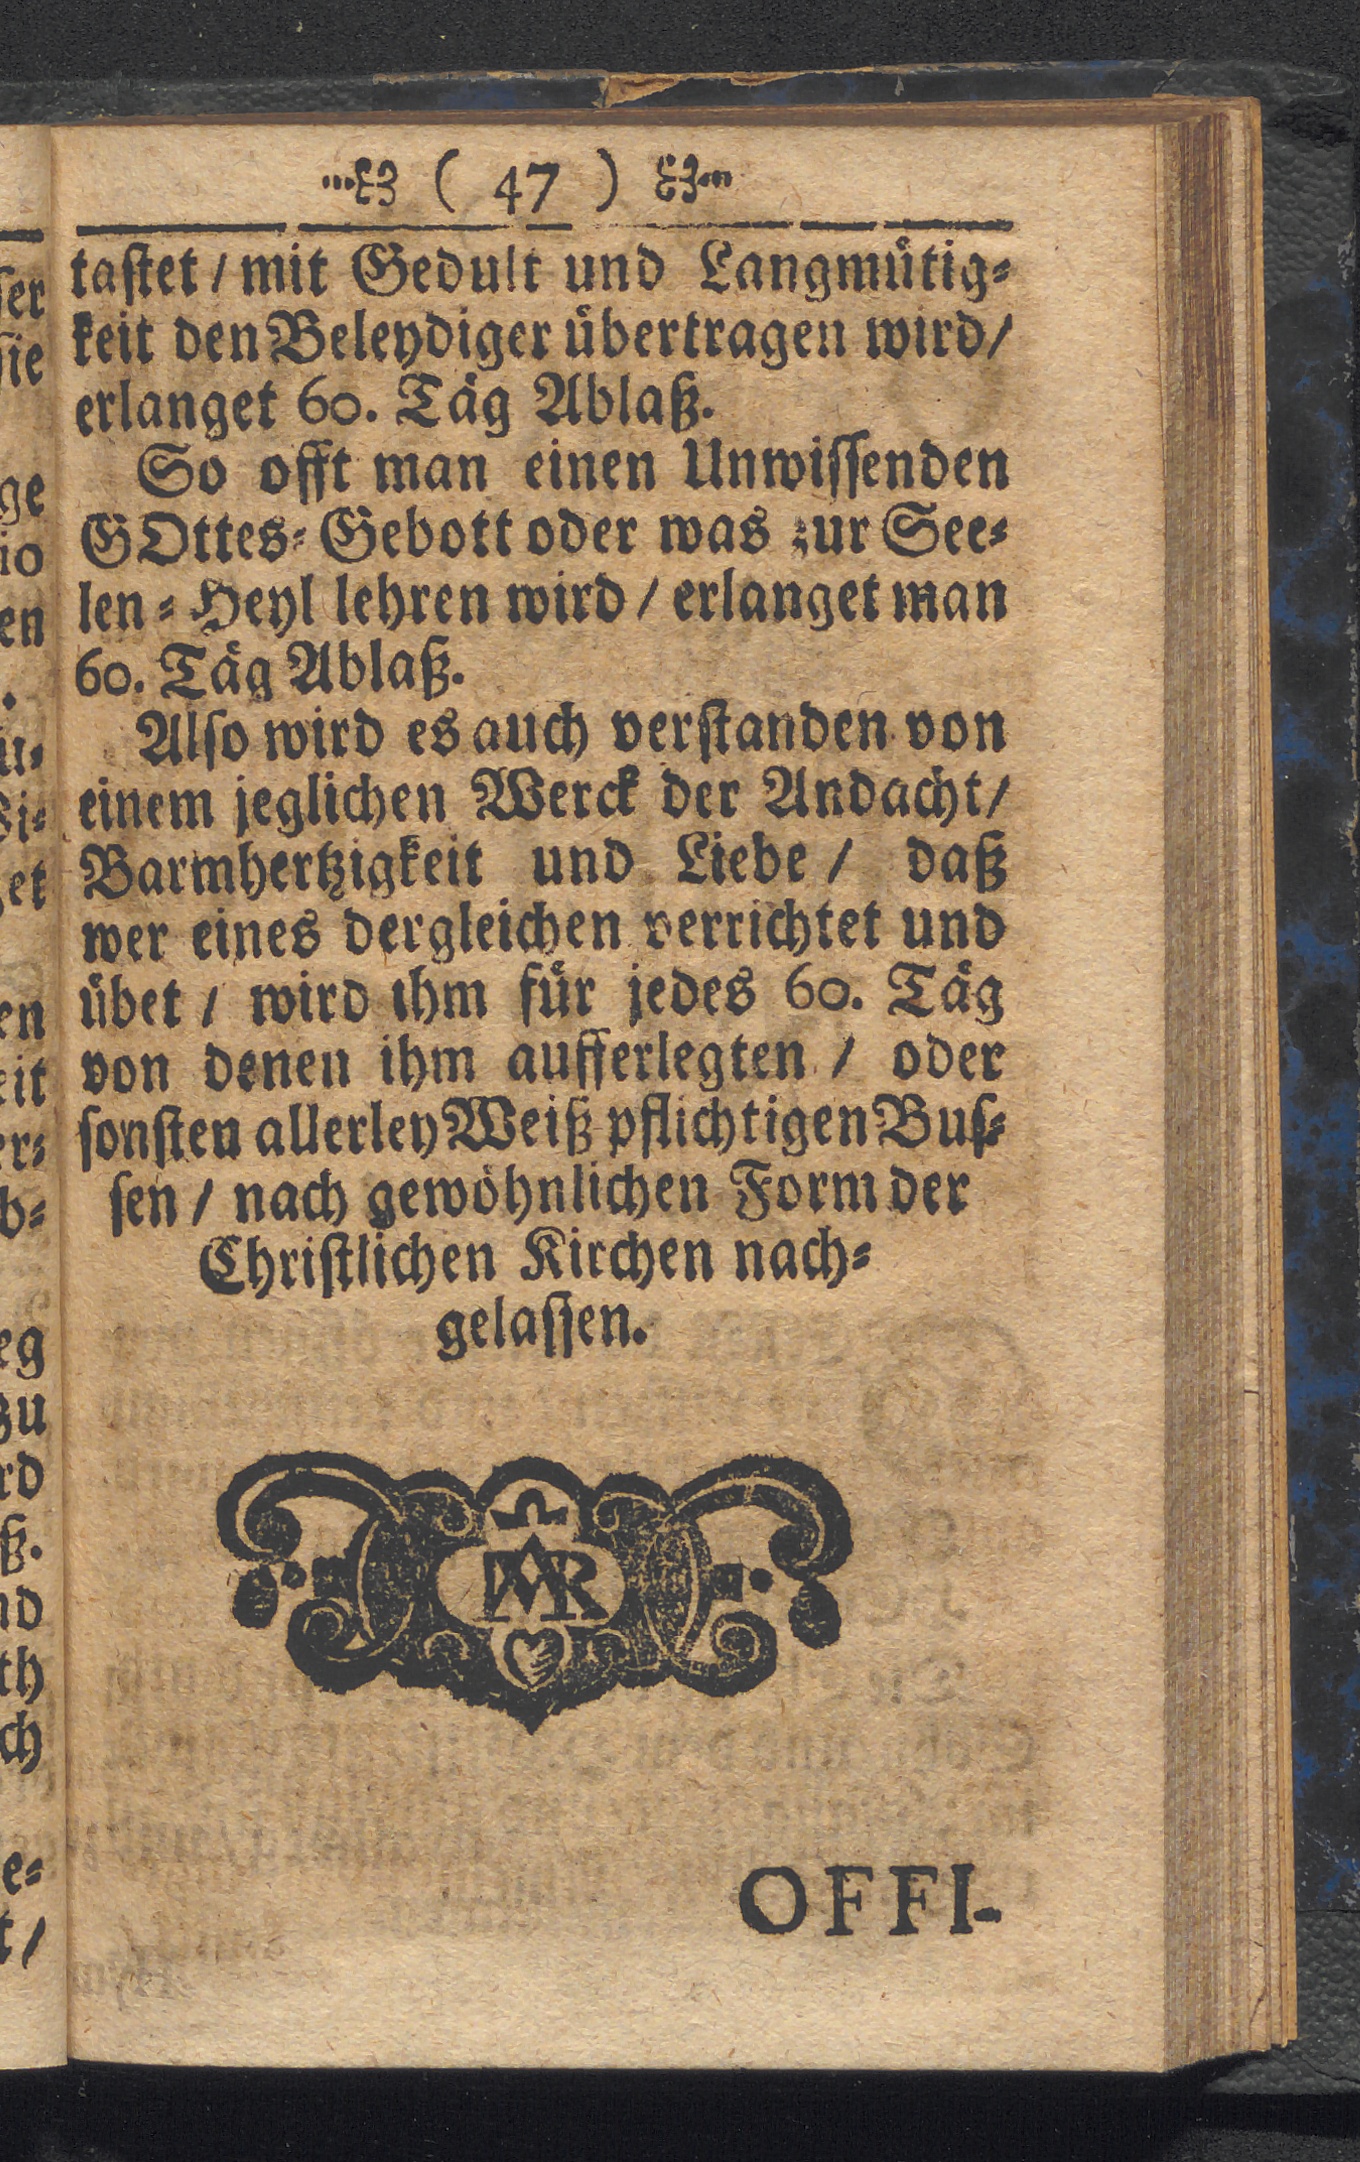 ( 47 )
tastet / mit Gedult und Langmuͤtig-
keit den Beleydiger uͤbertragen wird /
erlanget 60. Taͤg Ablaß.
So offt man einen Unwissenden
GOttes-Gebott oder was zur See-
len-Heyl lehren wird / erlanget man
60. Taͤg Ablaß.
Also wird es auch verstanden von
einem jeglichen Werck der Andacht /
Barmhertzigkeit und Liebe / daß
wer eines dergleichen verrichtet und
uͤbet / wird ihm fuͤr jedes 60. Taͤg
von denen ihm aufferlegten / oder
sonsten allerley Weiß pflichtigen Bus-
sen / nach gewoͤhnlichen Form der
Christlichen Kirchen nach-
gelassen.
MAR
OFFI-